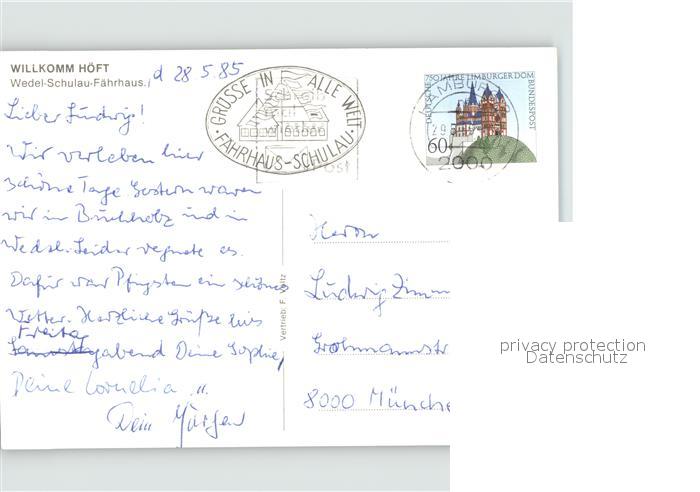 WILLKOMM HÖFT
Wedel-Schulau-Fährhaus.
d 28 5.85
Lieber Ludwig!
Wir verleben hier
schöne Tage. Gestern waren
wir in Buchholz und in
Wedel. Leider regnete es.
Dafür war Pfingsten ein schönes
Wetter. Herzliche Grüße bis
Freitag
abend Deine Sophie,
Deine Cornelia u.
Dein Jürgen
GRÜSSE IN ALLE WELT
·FÄHRHAUS-SCHULAU·
Vertrieb: F. Voltz
750 JAHRE LIMBURGER DOM
DEUTSCHE
BUNDESPOST
60
HAMBURG
2000
Herrn
Ludwig Zimm
Grohmannstr
8000 Münche
privacy protection
Datenschutz